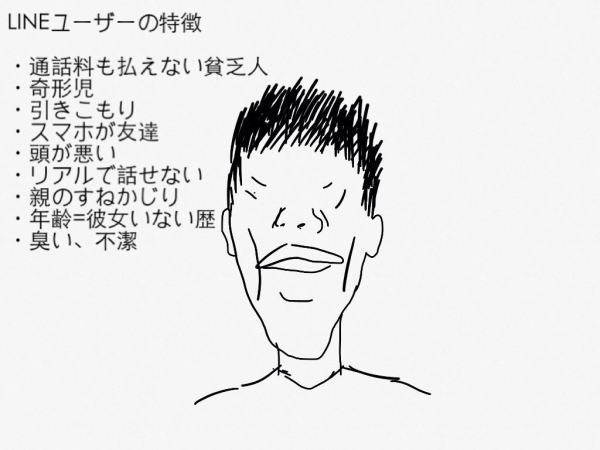 LINEユーザーの特徴
・通話料も払えない貧乏人
・奇形児
・引きこもり
・スマホが友達
・頭が悪い
・リアルで話せない
・親のすねかじり
・年齢=彼女いない歴
・臭い、不潔